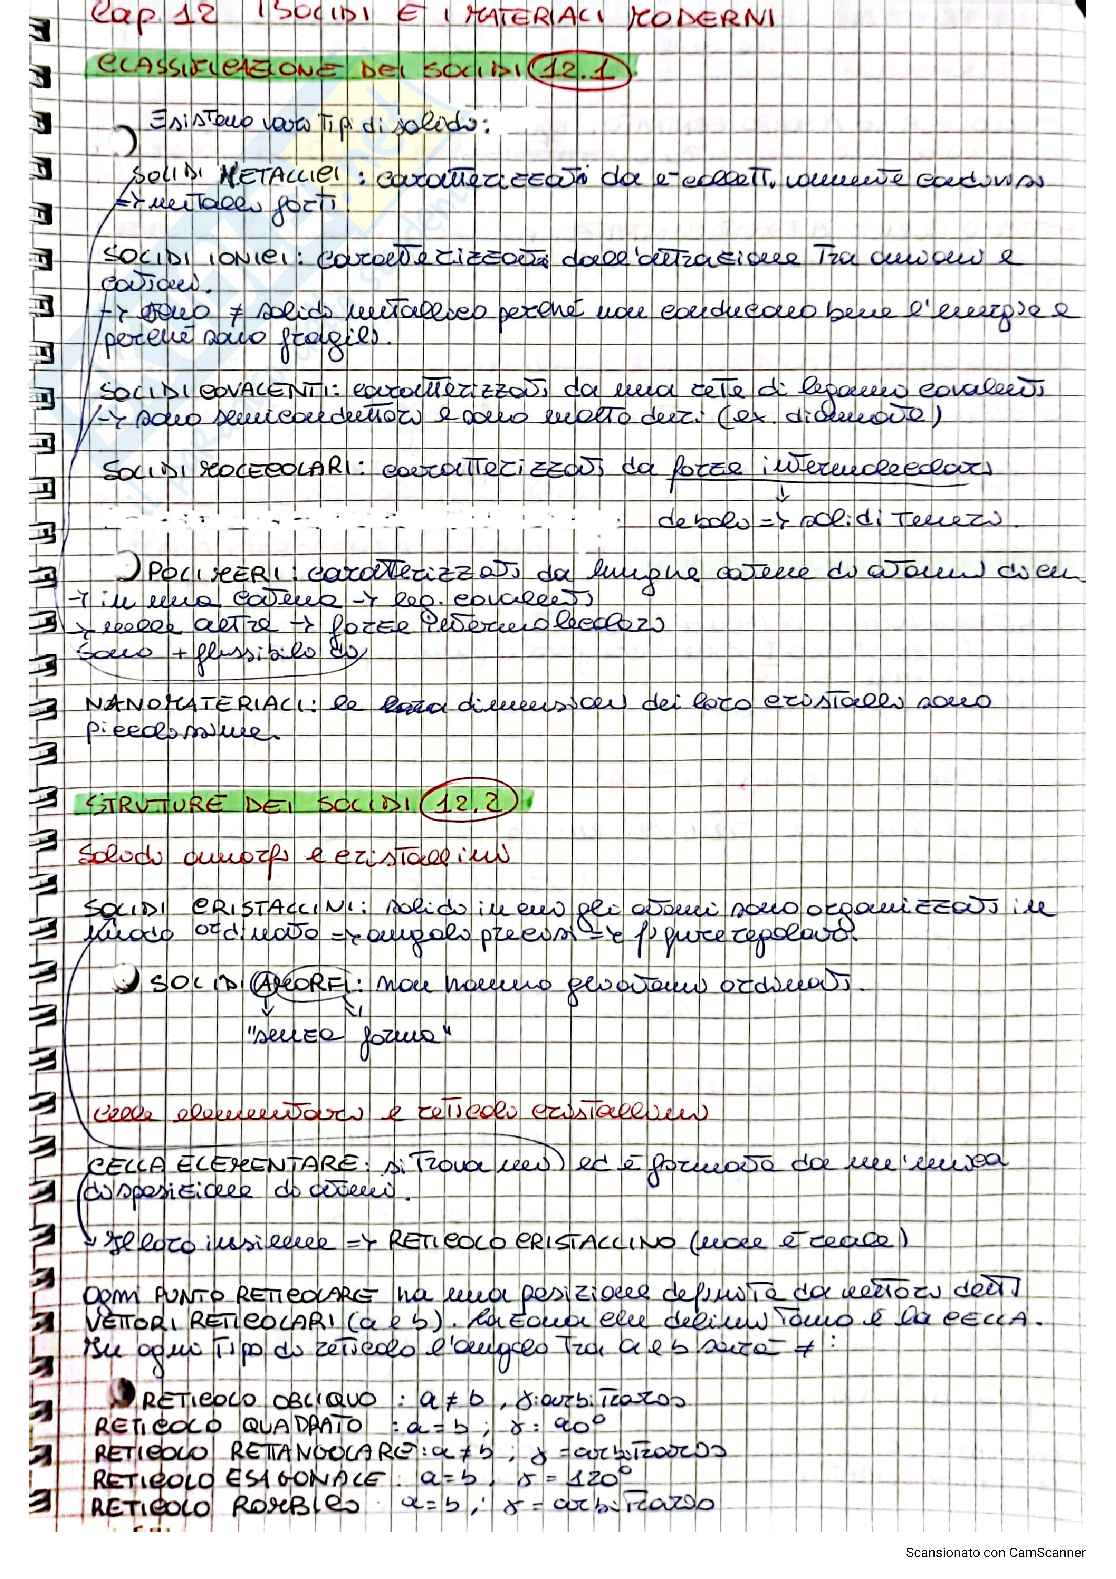 Cap 12 I SOLIDI E I MATERIALI MODERNI
CLASSIFICAZIONE DEI SOLIDI 12.1
Esistono vari tipi di solido:
SOLIDI METALLICI: caratterizzati da e⁻ condivisi
→ metalli forti
SOLIDI IONICI: caratterizzati dall'attrazione tra anioni e
cationi.
→ sono ≠ solido metallico perché non conducono bene l'energia e
perché sono fragili.
SOLIDI COVALENTI: caratterizzati da una rete di legami covalenti
→ sono semiconduttori e sono molto duri (ex. diamante)
SOLIDI MOLECOLARI: caratterizzati da forze intermolecolari
deboli => solidi teneri
POLIMERI: caratterizzati da lunghe catene di atomi di
→ in una catena → leg. covalenti
→ nelle altre → forze intermolecolari
Sono + flessibili di
NANOMATERIALI: le dimensioni dei loro cristalli sono
piccolissime.
STRUTURE DEI SOLIDI 12.2
Solidi amorfi e cristallini
SOLIDI CRISTALLINI: solido in cui gli atomi sono organizzati in
modo ordinato => angoli precisi => figure regolari.
SOLIDI AMORFI: non hanno gli atomi ordinati.
"senza forma"
Celle elementari e reticolo cristallino
CELLA ELEMENTARE: si trova nei ed è formata da un'unica
disposizione di atomi.
Il loro insieme => RETICOLO CRISTALLINO (non è reale)
Ogni PUNTO RETICOLARE ha una posizione definita da vettori detti
VETTORI RETICOLARI (a e b). La zona che delimitano è la CELLA.
In ogni tipo di reticolo l'angolo tra a e b sarà ≠:
RETICOLO OBLIQUO: a ≠ b, γ: arbitrario
RETICOLO QUADRATO: a = b; γ: 90°
RETICOLO RETTANGOLARE: a ≠ b; γ = arbitrario
RETICOLO ESAGONALE: a = b, γ = 120°
RETICOLO ROMBICO: a = b; γ = arbitrario
Scansionato con CamScanner